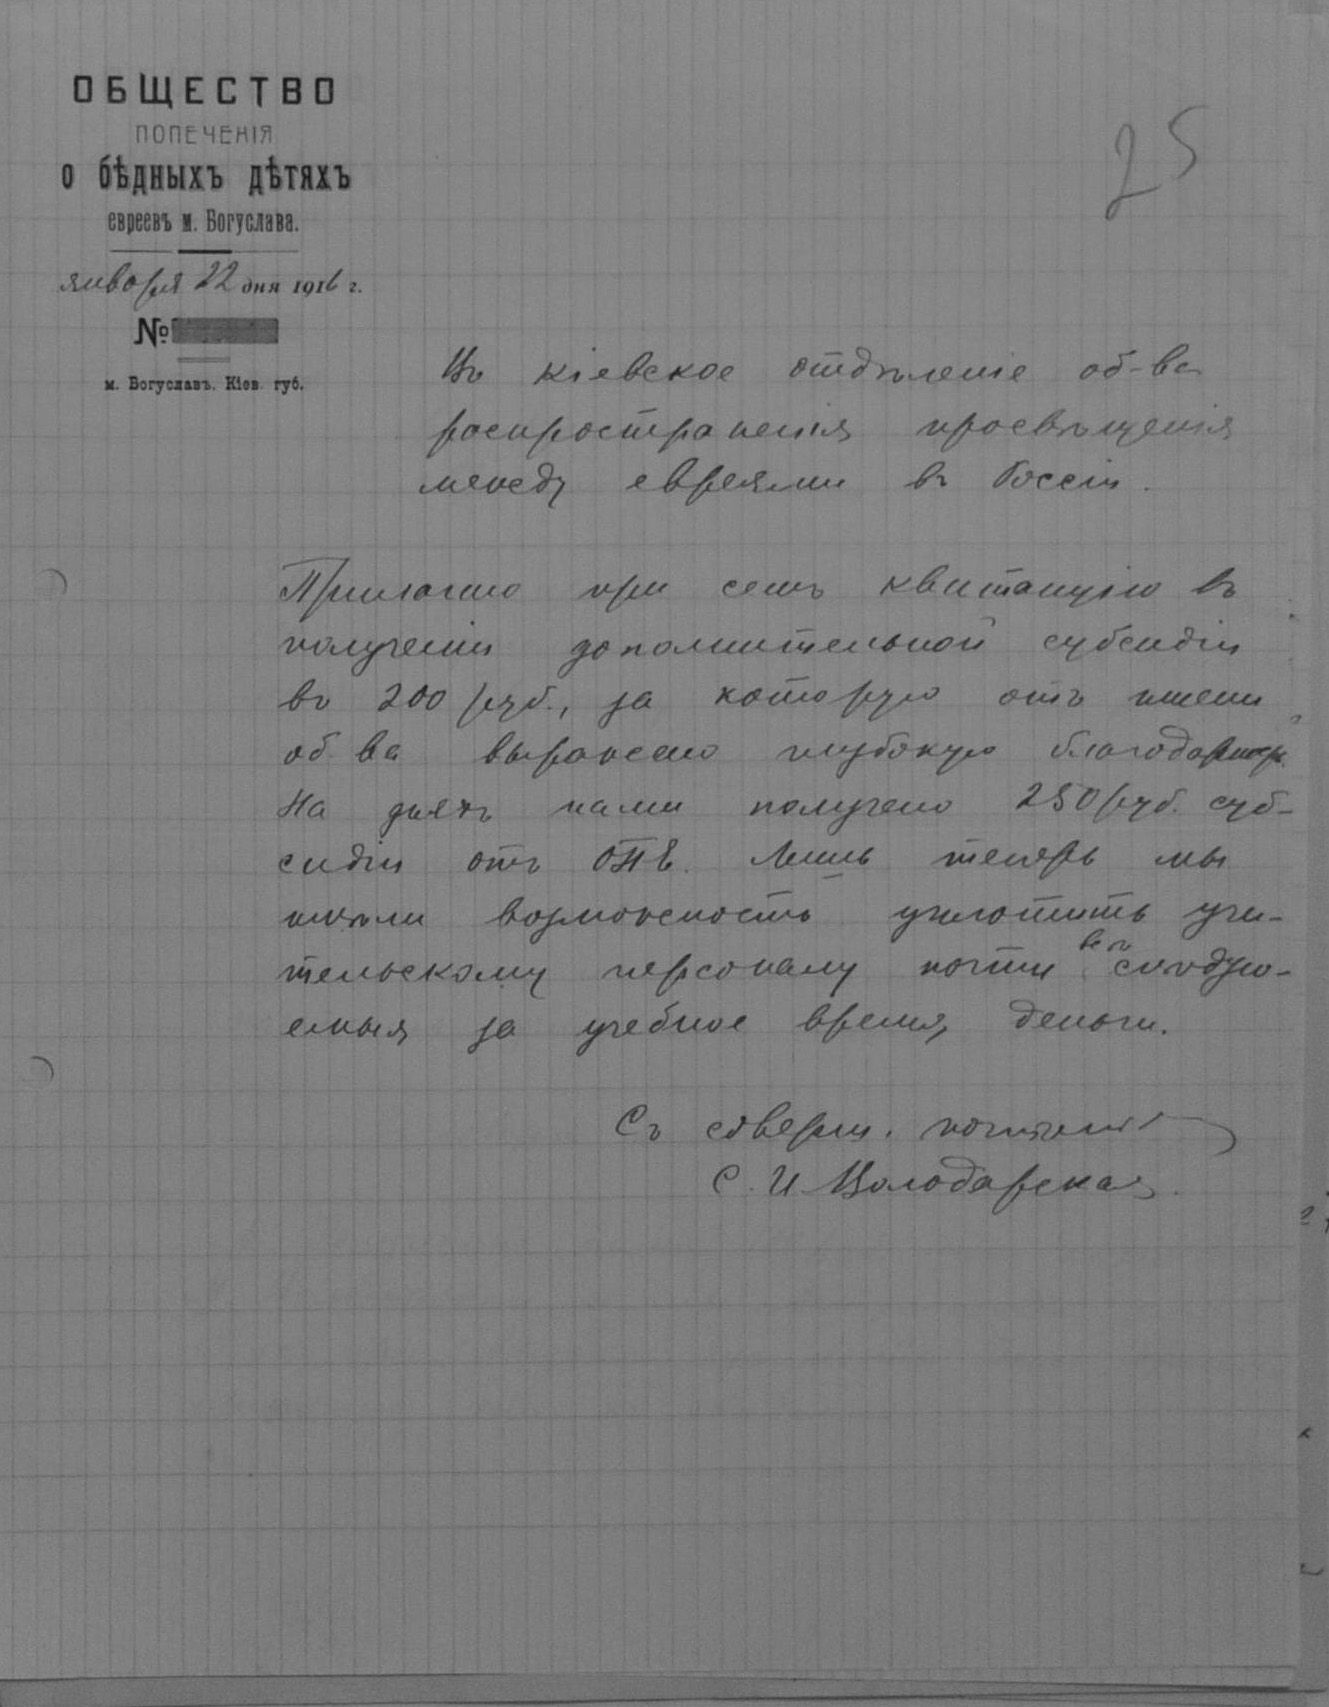 ОБЩЕСТВО
ПОПЕЧЕНІЯ
о бѣдныхъ дѣтяхъ
евреевъ м. Богуслава.
января 22 дня 1916 г.
№
м. Богуславъ. Кіев. губ.
25
Въ кіевское отдѣленіе об-ва
распространенія просвѣщенія
между евреями въ Россіи.
Прилагаю при семъ квитанцію въ
полученіи дополнительной субсидіи
въ 200 руб., за которую отъ имени
об-ва выражаю глубокую благодарность.
На дняхъ нами получено 250 руб. суб-
сидіи отъ ОПЕ. Лишь теперь мы
имѣли возможность уплотить учи-
тельскому персоналу почти всѣ слѣдую-
емыя за учебное время, деньги.
Съ соверш. почтеніе
С. И. Володарская.